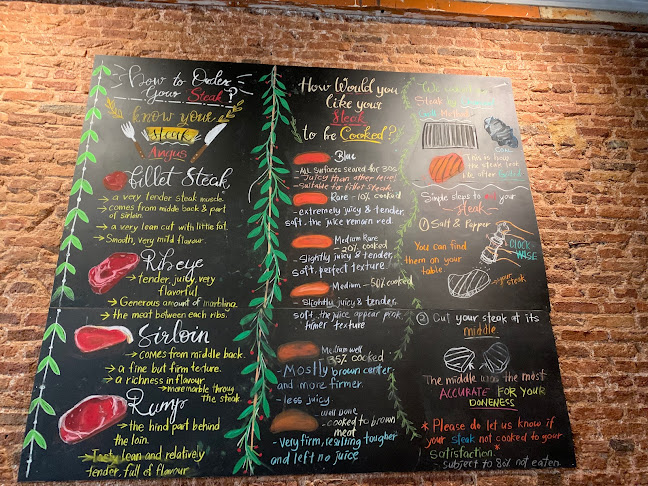 How to Order
your Steak?
know your
steak
Angus
fillet Steak
→ a very tender steak muscle.
→ comes from middle back & part
of sirloin.
→ a very lean cut with little fat.
→ Smooth, very mild flavour.
Ribeye
→ tender, juicy, very
flavorful
→ Generous amount of marbling.
→ the meat between each ribs.
Sirloin
→ comes from middle back.
→ a fine but firm texture.
→ a richness in flavour
→ more marble throu
the steak.
Rump
→ the hind part behind
the loin.
→ Tasty lean and relatively
tender, full of flavour
How Would you
like your
Steak
to be Cooked?
Blue
- ALL Surfaces seared for 30s
- Juicy than other level
- Suitable for fillet steak
Rare - 10% cooked
- extremely juicy & tender,
soft. the juice remain red
Medium Rare
- 20% cooked
- Slightly juicy & tender,
soft, perfect texture
Medium - 50% cooked
- Slightly juicy & tender,
soft, the juice appear pink,
firmer texture
Medium well
85% cooked
- Mostly brown center
and more firmer.
- less juicy.
well Done
- cooked to brown
meat
- Very firm, resulting tougher
and left no juice
We
Steak by
Salt Method
This to have
the steak text
ure after Grilled
Simple steps to your
steak
① Salt & Pepper
You can find
them on your
table.
CLOCK
WISE
your
steak
② Cut your steak at its
middle
The middle was the most
ACCURATE FOR YOUR
DONENESS
* Please do let us know if
your steak not cooked to your
Satisfaction. *
- subject to 80% not eaten